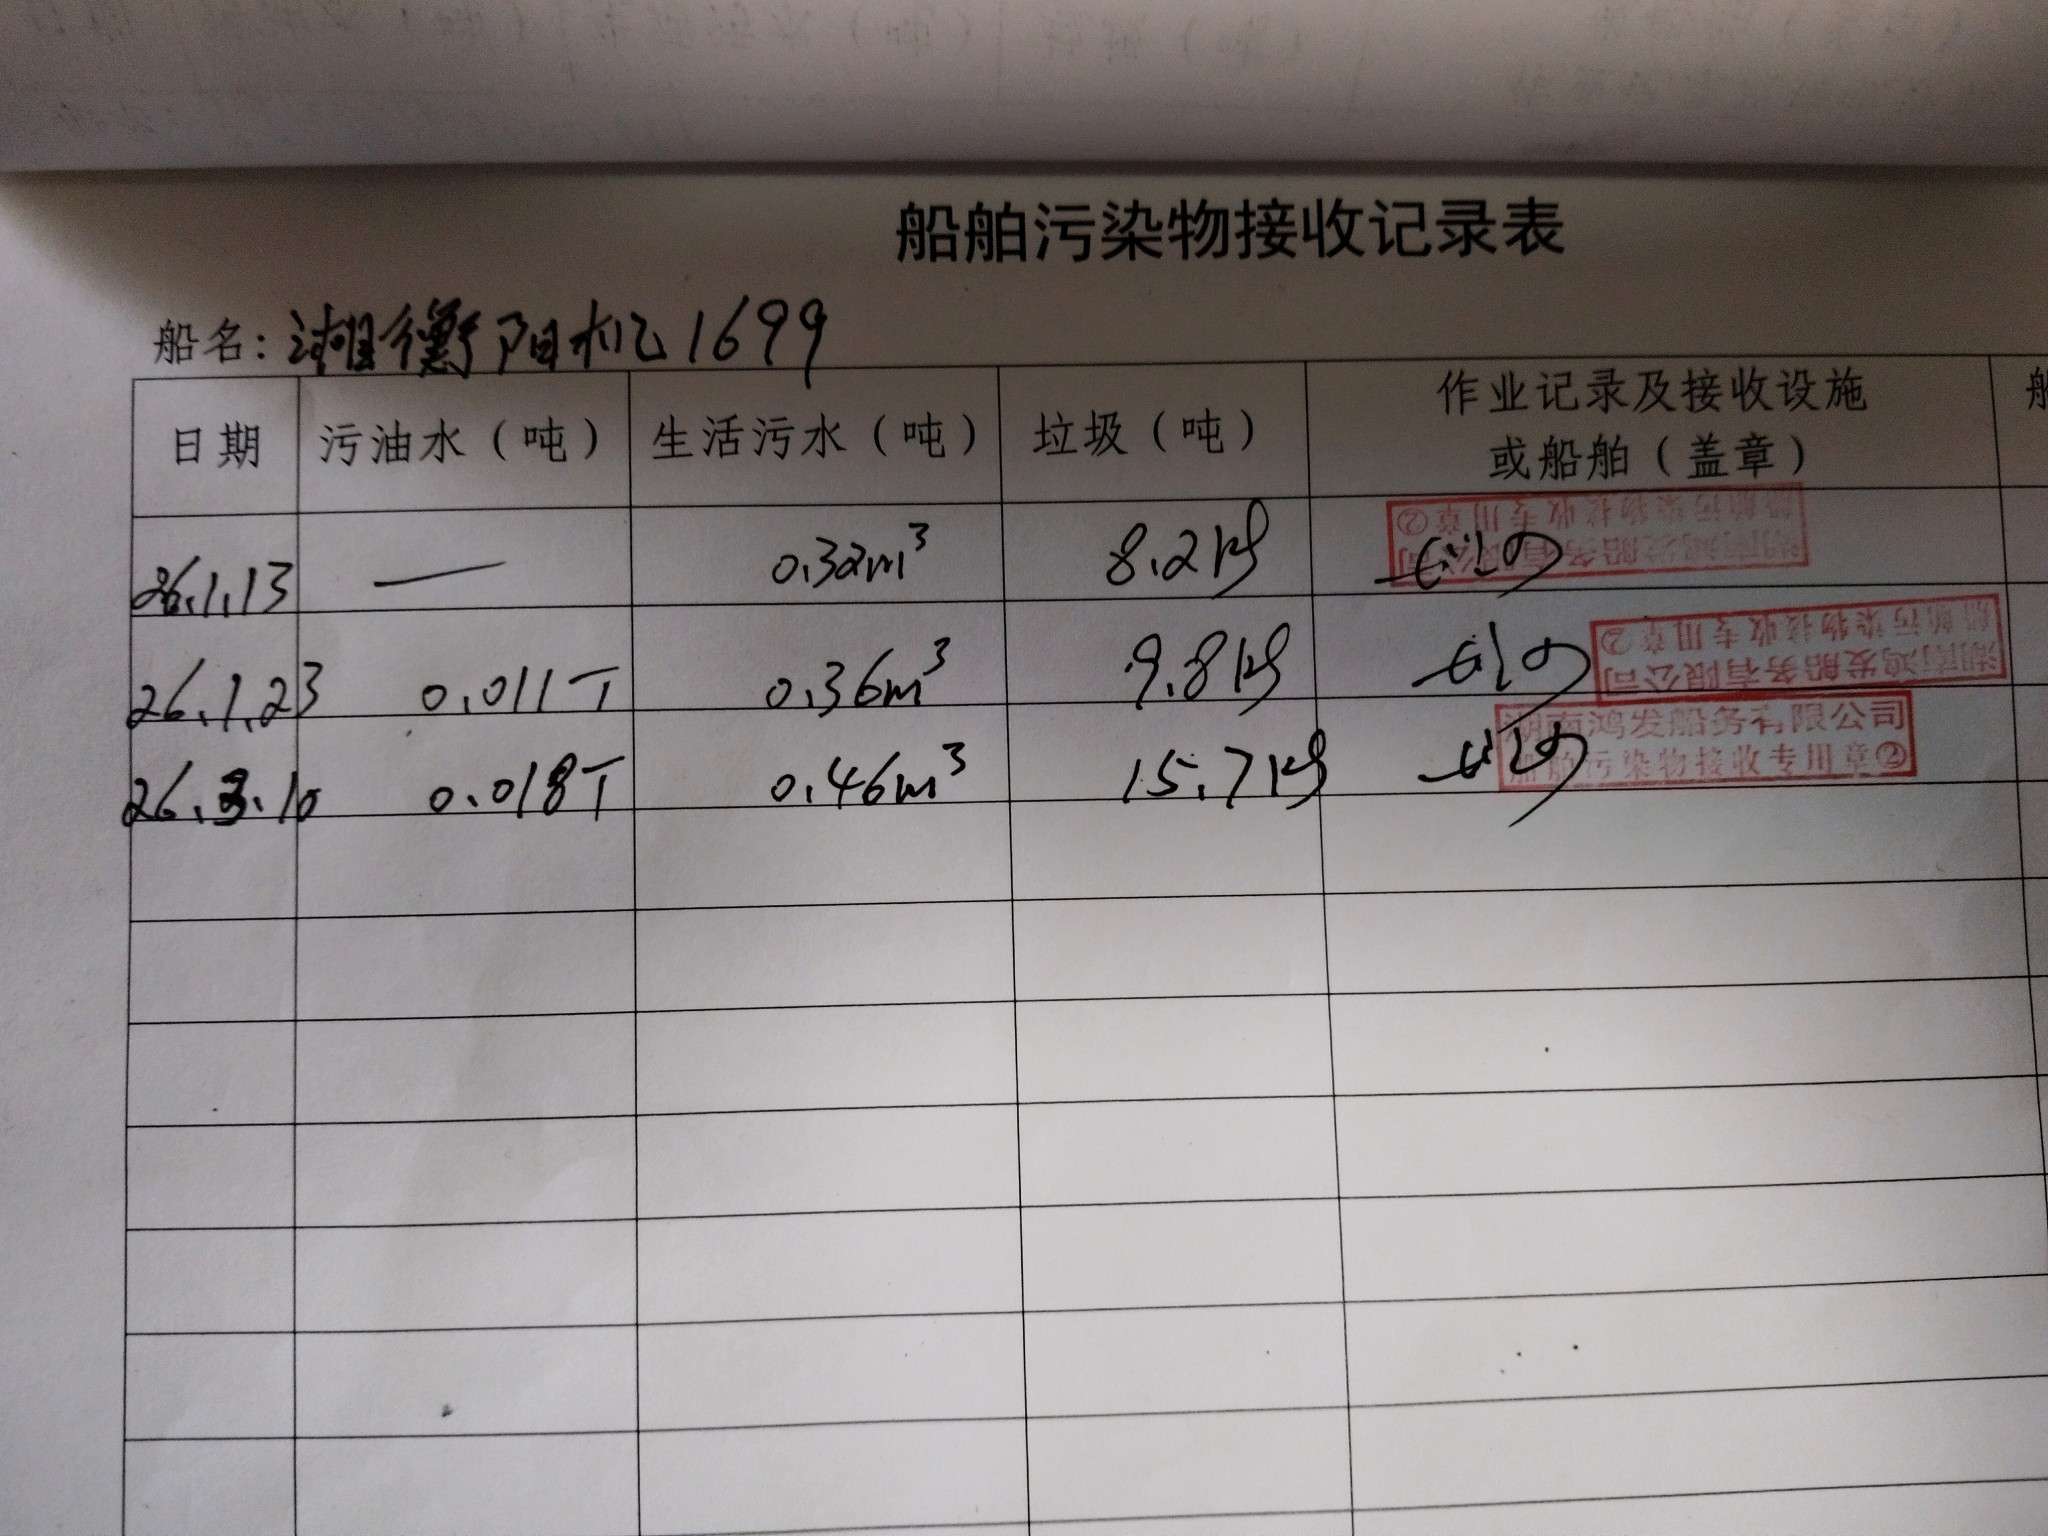 船舶污染物接收记录表
船名：湘衡阳机1699
日期 污油水（吨） 生活污水（吨） 垃圾（吨） 作业记录及接收设施
或船舶（盖章）
26.1.13 — 0.32m³ 8.2kg
湖南鸿发船务有限公司
船舶污染物接收专用章②
26.1.23 0.011T 0.36m³ 9.8kg
湖南鸿发船务有限公司
船舶污染物接收专用章②
26.3.10 0.018T 0.46m³ 15.7kg
湖南鸿发船务有限公司
船舶污染物接收专用章②